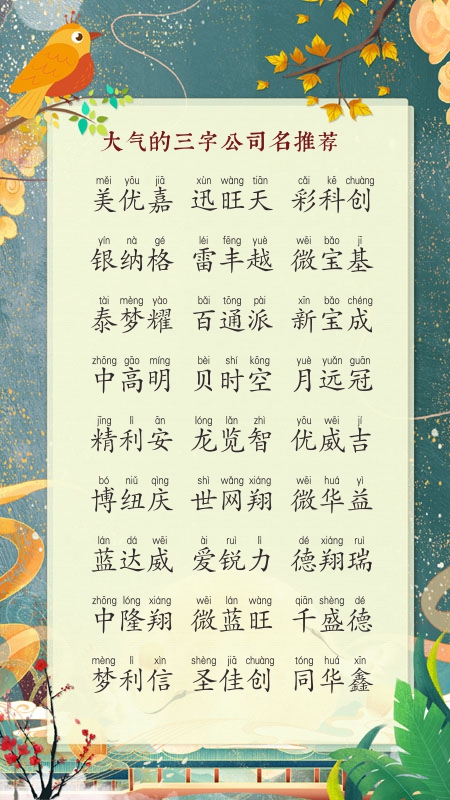 大气的三字公司名推荐
měi yōu jiā xùn wàng tiān cǎi kē chuàng
美优嘉 迅旺天 彩科创
yín nà gé léi fēng yuè wēi bǎo jī
银纳格 雷丰越 微宝基
tài mèng yào bǎi tōng pài xīn bǎo chéng
泰梦耀 百通派 新宝成
zhōng gāo míng bèi shí kōng yuè yuǎn guān
中高明 贝时空 月远冠
jīng lì ān lóng lǎn zhì yōu wēi jí
精利安 龙览智 优威吉
bó niǔ qìng shì wǎng xiáng wēi huá yì
博纽庆 世网翔 微华益
lán dá wēi ài ruì lì dé xiáng ruì
蓝达威 爱锐力 德翔瑞
zhōng lóng xiáng wēi lán wàng qiān shèng dé
中隆翔 微蓝旺 千盛德
mèng lì xìn shèng jiā chuàng tóng huá xīn
梦利信 圣佳创 同华鑫